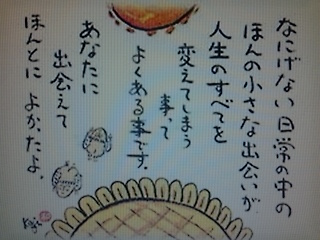 なにげない日常の中の
ほんの小さな出会いが
人生のすべてを
変えてしまう
事って
よくある事です。
あなたに
出会えて
ほんとに よかったよ。